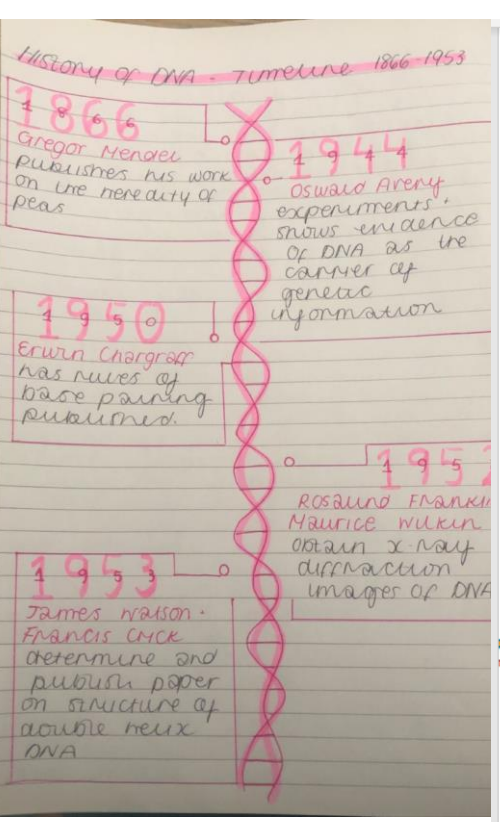 History of DNA - Timeline 1866-1953
1866
Gregor Mendel
publishes his work
on the heredity of
peas
1944
Oswald Avery
experiments.
shows evidence
of DNA as the
carrier of
genetic
information
1950
Erwin Chargraff
has rules of
base pairing
published.
195
Rosalind Frankli
Maurice Wilkin
obtain x-ray
diffraction
images of DNA
1953
James Watson.
Francis Crick
determine and
publish paper
on structure of
double helix
DNA